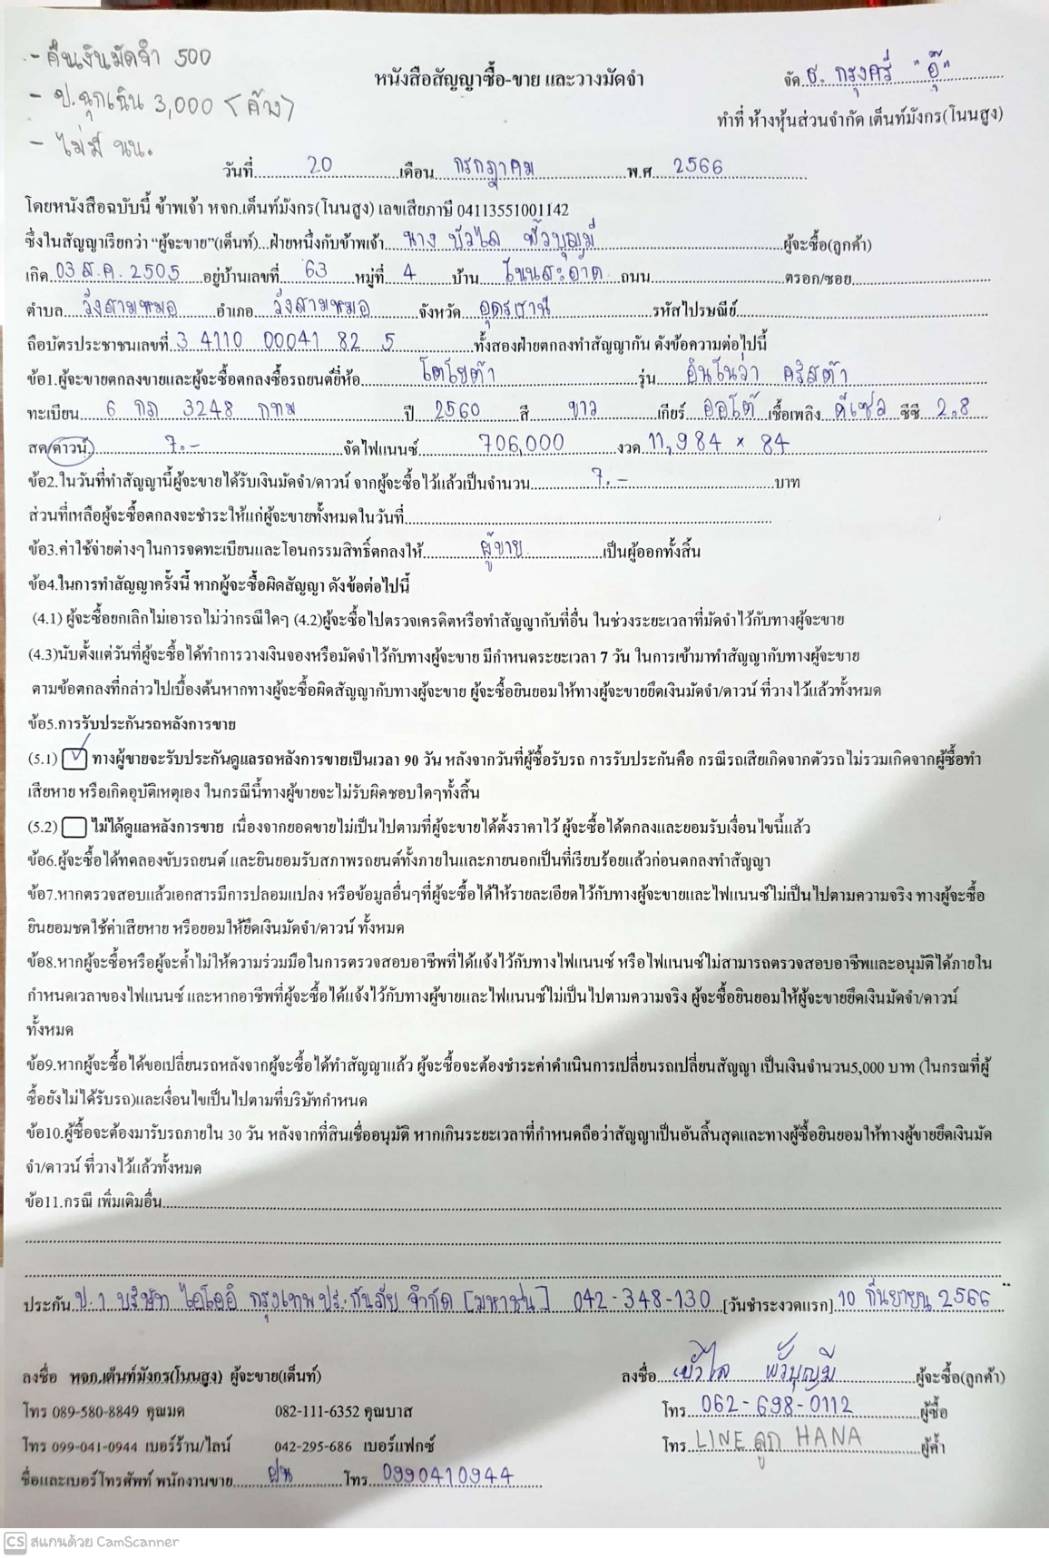 - คืนเงินมัดจำ 500
- ป.ฉุกเฉิน 3,000 (ค้าง)
- ไม่มี นน.
จัด ธ. กรุงศรี "อุ๊"
หนังสือสัญญาซื้อ-ขาย และวางมัดจำ
ทำที่ ห้างหุ้นส่วนจำกัด เต็นท์มังกร(โนนสูง)
วันที่ 20 เดือน กรกฎาคม พ.ศ 2566
โดยหนังสือฉบับนี้ ข้าพเจ้า หจก.เต็นท์มังกร(โนนสูง) เลขเสียภาษี 04113551001142
ซึ่งในสัญญาเรียกว่า "ผู้จะขาย"(เต็นท์)...ฝ่ายหนึ่งกับข้าพเจ้า นาง บัวไล พั้วบุญมี ผู้จะซื้อ(ลูกค้า)
เกิด 03 ส.ค. 2505 อยู่บ้านเลขที่ 63 หมู่ที่ 4 บ้าน โนนสะอาด ถนน ตรอก/ซอย
ตำบล วังสามหมอ อำเภอ วังสามหมอ จังหวัด อุดรธานี รหัสไปรษณีย์
ถือบัตรประชาชนเลขที่ 3 4110 00041 82 5 ทั้งสองฝ่ายตกลงทำสัญญากัน ดังข้อความต่อไปนี้
ข้อ1.ผู้จะขายตกลงขายและผู้จะซื้อตกลงซื้อรถยนต์ยี่ห้อ โตโยต้า รุ่น อินโนว่า คริสต้า
ทะเบียน 6 กภ 3248 กทม ปี 2560 สี ขาว เกียร์ ออโต้ เชื้อเพลิง ดีเซล ซีซี 2.8
สด/ดาวน์ 7.- จัดไฟแนนซ์ 706,000 งวด 11,984 × 84
ข้อ2.ในวันที่ทำสัญญานี้ผู้จะขายได้รับเงินมัดจำ/ดาวน์ จากผู้จะซื้อไว้แล้วเป็นจำนวน 7.- บาท
ส่วนที่เหลือผู้จะซื้อตกลงจะชำระให้แก่ผู้จะขายทั้งหมดในวันที่
ข้อ3.ค่าใช้จ่ายต่างๆในการจดทะเบียนและโอนกรรมสิทธิ์ตกลงให้ ผู้ขาย เป็นผู้ออกทั้งสิ้น
ข้อ4.ในการทำสัญญาครั้งนี้ หากผู้จะซื้อผิดสัญญา ดังข้อต่อไปนี้
(4.1) ผู้จะซื้อยกเลิกไม่เอารถไม่ว่ากรณีใดๆ (4.2)ผู้จะซื้อไปตรวจเครดิตหรือทำสัญญากับที่อื่น ในช่วงระยะเวลาที่มัดจำไว้กับทางผู้จะขาย
(4.3)นับตั้งแต่วันที่ผู้จะซื้อได้ทำการวางเงินจองหรือมัดจำไว้กับทางผู้จะขาย มีกำหนดระยะเวลา 7 วัน ในการเข้ามาทำสัญญากับทางผู้จะขาย
ตามข้อตกลงที่กล่าวไปเบื้องต้นหากทางผู้จะซื้อผิดสัญญากับทางผู้จะขาย ผู้จะซื้อยินยอมให้ทางผู้จะขายยึดเงินมัดจำ/ดาวน์ ที่วางไว้แล้วทั้งหมด
ข้อ5.การรับประกันรถหลังการขาย
(5.1) ✓ ทางผู้ขายจะรับประกันดูแลรถหลังการขายเป็นเวลา 90 วัน หลังจากวันที่ผู้ซื้อรับรถ การรับประกันคือ กรณีรถเสียเกิดจากตัวรถไม่รวมเกิดจากผู้ซื้อทำ
เสียหาย หรือเกิดอุบัติเหตุเอง ในกรณีนี้ทางผู้ขายจะไม่รับผิดชอบใดๆทั้งสิ้น
(5.2) ไม่ได้ดูแลหลังการขาย เนื่องจากยอดขายไม่เป็นไปตามที่ผู้จะขายได้ตั้งราคาไว้ ผู้จะซื้อได้ตกลงและยอมรับเงื่อนไขนี้แล้ว
ข้อ6.ผู้จะซื้อได้ทดลองขับรถยนต์ และยินยอมรับสภาพรถยนต์ทั้งภายในและภายนอกเป็นที่เรียบร้อยแล้วก่อนตกลงทำสัญญา
ข้อ7.หากตรวจสอบแล้วเอกสารมีการปลอมแปลง หรือข้อมูลอื่นๆที่ผู้จะซื้อได้ให้รายละเอียดไว้กับทางผู้จะขายและไฟแนนซ์ไม่เป็นไปตามความจริง ทางผู้จะซื้อ
ยินยอมชดใช้ค่าเสียหาย หรือยอมให้ยึดเงินมัดจำ/ดาวน์ ทั้งหมด
ข้อ8.หากผู้จะซื้อหรือผู้จะค้ำไม่ให้ความร่วมมือในการตรวจสอบอาชีพที่ได้แจ้งไว้กับทางไฟแนนซ์ หรือไฟแนนซ์ไม่สามารถตรวจสอบอาชีพและอนุมัติได้ภายใน
กำหนดเวลาของไฟแนนซ์ และหากอาชีพที่ผู้จะซื้อได้แจ้งไว้กับทางผู้ขายและไฟแนนซ์ไม่เป็นไปตามความจริง ผู้จะซื้อยินยอมให้ผู้จะขายยึดเงินมัดจำ/ดาวน์
ทั้งหมด
ข้อ9.หากผู้จะซื้อได้ขอเปลี่ยนรถหลังจากผู้จะซื้อได้ทำสัญญาแล้ว ผู้จะซื้อจะต้องชำระค่าดำเนินการเปลี่ยนรถเปลี่ยนสัญญา เป็นเงินจำนวน5,000 บาท (ในกรณที่ผู้
ซื้อยังไม่ได้รับรถ)และเงื่อนไขเป็นไปตามที่บริษัทกำหนด
ข้อ10.ผู้ซื้อจะต้องมารับรถภายใน 30 วัน หลังจากที่สินเชื่ออนุมัติ หากเกินระยะเวลาที่กำหนดถือว่าสัญญาเป็นอันสิ้นสุดและทางผู้ซื้อยินยอมให้ทางผู้ขายยึดเงินมัด
จำ/ดาวน์ ที่วางไว้แล้วทั้งหมด
ข้อ11.กรณี เพิ่มเติมอื่น
ประกัน ป.1 บริษัท ไอโออิ กรุงเทพ ประกันภัย จำกัด [มหาชน] 042-348-130 [วันชำระงวดแรก] 10 กันยายน 2566
ลงชื่อ หจก.เต็นท์มังกร(โนนสูง) ผู้จะขาย(เต็นท์) ลงชื่อ บัวไล พั้วบุญมี ผู้จะซื้อ(ลูกค้า)
โทร 089-580-8849 คุณมด 082-111-6352 คุณบาส โทร 062-698-0112 ผู้ซื้อ
โทร 099-041-0944 เบอร์ร้าน/ไลน์ 042-295-686 เบอร์แฟกซ์ โทร LINE ลูก HANA ผู้ค้ำ
ชื่อและเบอร์โทรศัพท์ พนักงานขาย ฝน โทร 0990410944
CS สแกนด้วย CamScanner